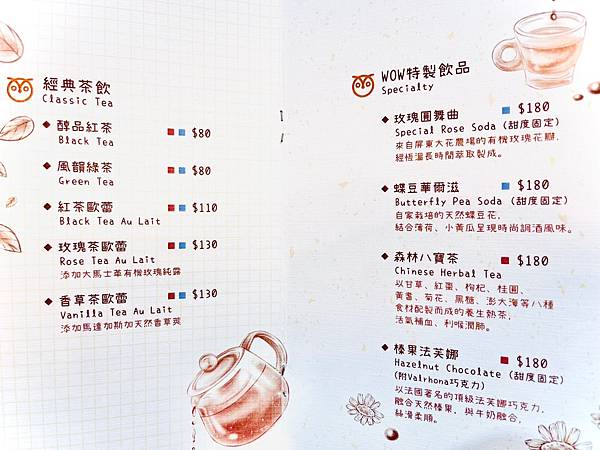 經典茶飲
Classic Tea
醇品紅茶 $80
Black Tea
風韻綠茶 $80
Green Tea
紅茶歐蕾 $110
Black Tea Au Lait
玫瑰茶歐蕾 $130
Rose Tea Au Lait
添加大馬士革有機玫瑰純露
香草茶歐蕾 $130
Vanilla Tea Au Lait
添加馬達加斯加天然香草莢
WOW特製飲品
Specialty
玫瑰圓舞曲 $180
Special Rose Soda (甜度固定)
來自屏東大花農場的有機玫瑰花瓣,
經恆溫長時間萃取製成。
蝶豆華爾滋 $180
Butterfly Pea Soda (甜度固定)
自家栽培的天然蝶豆花,
結合薄荷、小黃瓜呈現時尚調酒風味。
森林八寶茶 $180
Chinese Herbal Tea
以甘草、紅棗、枸杞、桂圓、
黃耆、菊花、黑糖、澎大海等八種
食材配製而成的養生熱茶,
活氣補血、利喉潤肺。
榛果法芙娜 $180
Hazelnut Chocolate (甜度固定)
(附Valrhona巧克力)
以法國著名的頂級法芙娜巧克力,
融合天然榛果,與牛奶融合,
絲滑柔順。